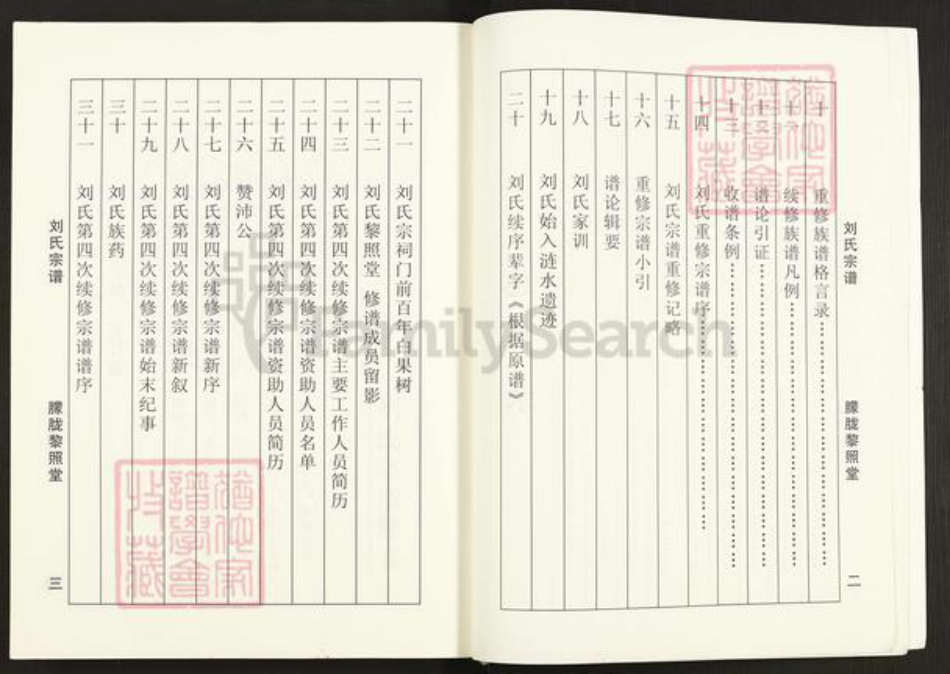 刘氏宗谱 朦胧黎照堂 二
十 重修族谱格言录
十一 续修族谱凡例
十二 谱论引证
十三 收谱条例
十四 刘氏重修宗谱序
十五 刘氏宗谱重修记略
十六 重修宗谱小引
十七 谱论辑要
十八 刘氏家训
十九 刘氏始入涟水遗迹
二十 刘氏续序辈字《根据原谱》
二十一 刘氏宗祠门前百年白果树
二十二 刘氏黎照堂 修谱成员留影
二十三 刘氏第四次续修宗谱主要工作人员简历
二十四 刘氏第四次续修宗谱资助人员名单
二十五 刘氏第四次续修宗谱资助人员简历
二十六 赞沛公
二十七 刘氏第四次续修宗谱新序
二十八 刘氏第四次续修宗谱新叙
二十九 刘氏第四次续修宗谱始末纪事
三十 刘氏族药
三十一 刘氏第四次续修宗谱谱序
刘氏宗谱 朦胧黎照堂 三
FamilySearch